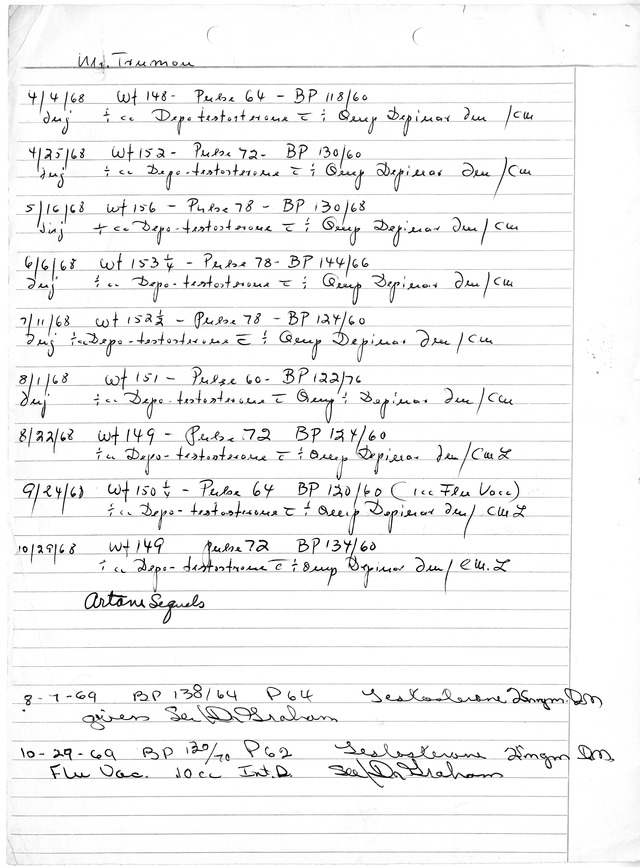 Mr. Truman
4/4/68 Wt 148- Pulse 64 - BP 118/60
Inj ½ cc Depo testosterone c̄ ½ Amp Depinar Im /CM
4/25/68 Wt 152 - Pulse 72- BP 130/60
Inj ½ cc Depo-testosterone c̄ ½ Amp Depinar Im /CM
5/16/68 Wt 156 - Pulse 78 - BP 130/68
Inj cc Depo-testosterone c̄ ½ Amp Depinar Im /CM
6/6/68 Wt 153¼ - Pulse 78- BP 144/66
Inj ½ cc Depo-testosterone c̄ ½ Amp Depinar Im /CM
7/11/68 Wt 152½ - Pulse 78 - BP 124/60
Inj ½cc Depo-testosterone c̄ ½ Amp Depinar Im /CM
8/1/68 Wt 151 - Pulse 60- BP 122/76
Inj ½ cc Depo-testosterone c̄ Amp ½ Depinar Im /CM
8/22/68 Wt 149 - Pulse 72 BP 124/60
½ cc Depo-testosterone c̄ ½ Amp Depinar Im /CML
9/24/68 Wt 150¼ - Pulse 64 BP 120/60 (1cc Flu Vacc)
½ cc Depo-testosterone c̄ ½ Amp Depinar Im/ CML
10/29/68 Wt 149 Pulse 72 BP 134/60
½ cc Depo-testosterone c̄ ½ Amp Depinar Im/ C.M.L
Artane Sequels
8-7-69 BP 138/64 P64 Testosterone 25mgm.
given See/Dr Graham
10-29-69 BP 130/70 P62 Testosterone 25mgm
Flu Vac. .10cc Int.D. See/Dr Graham